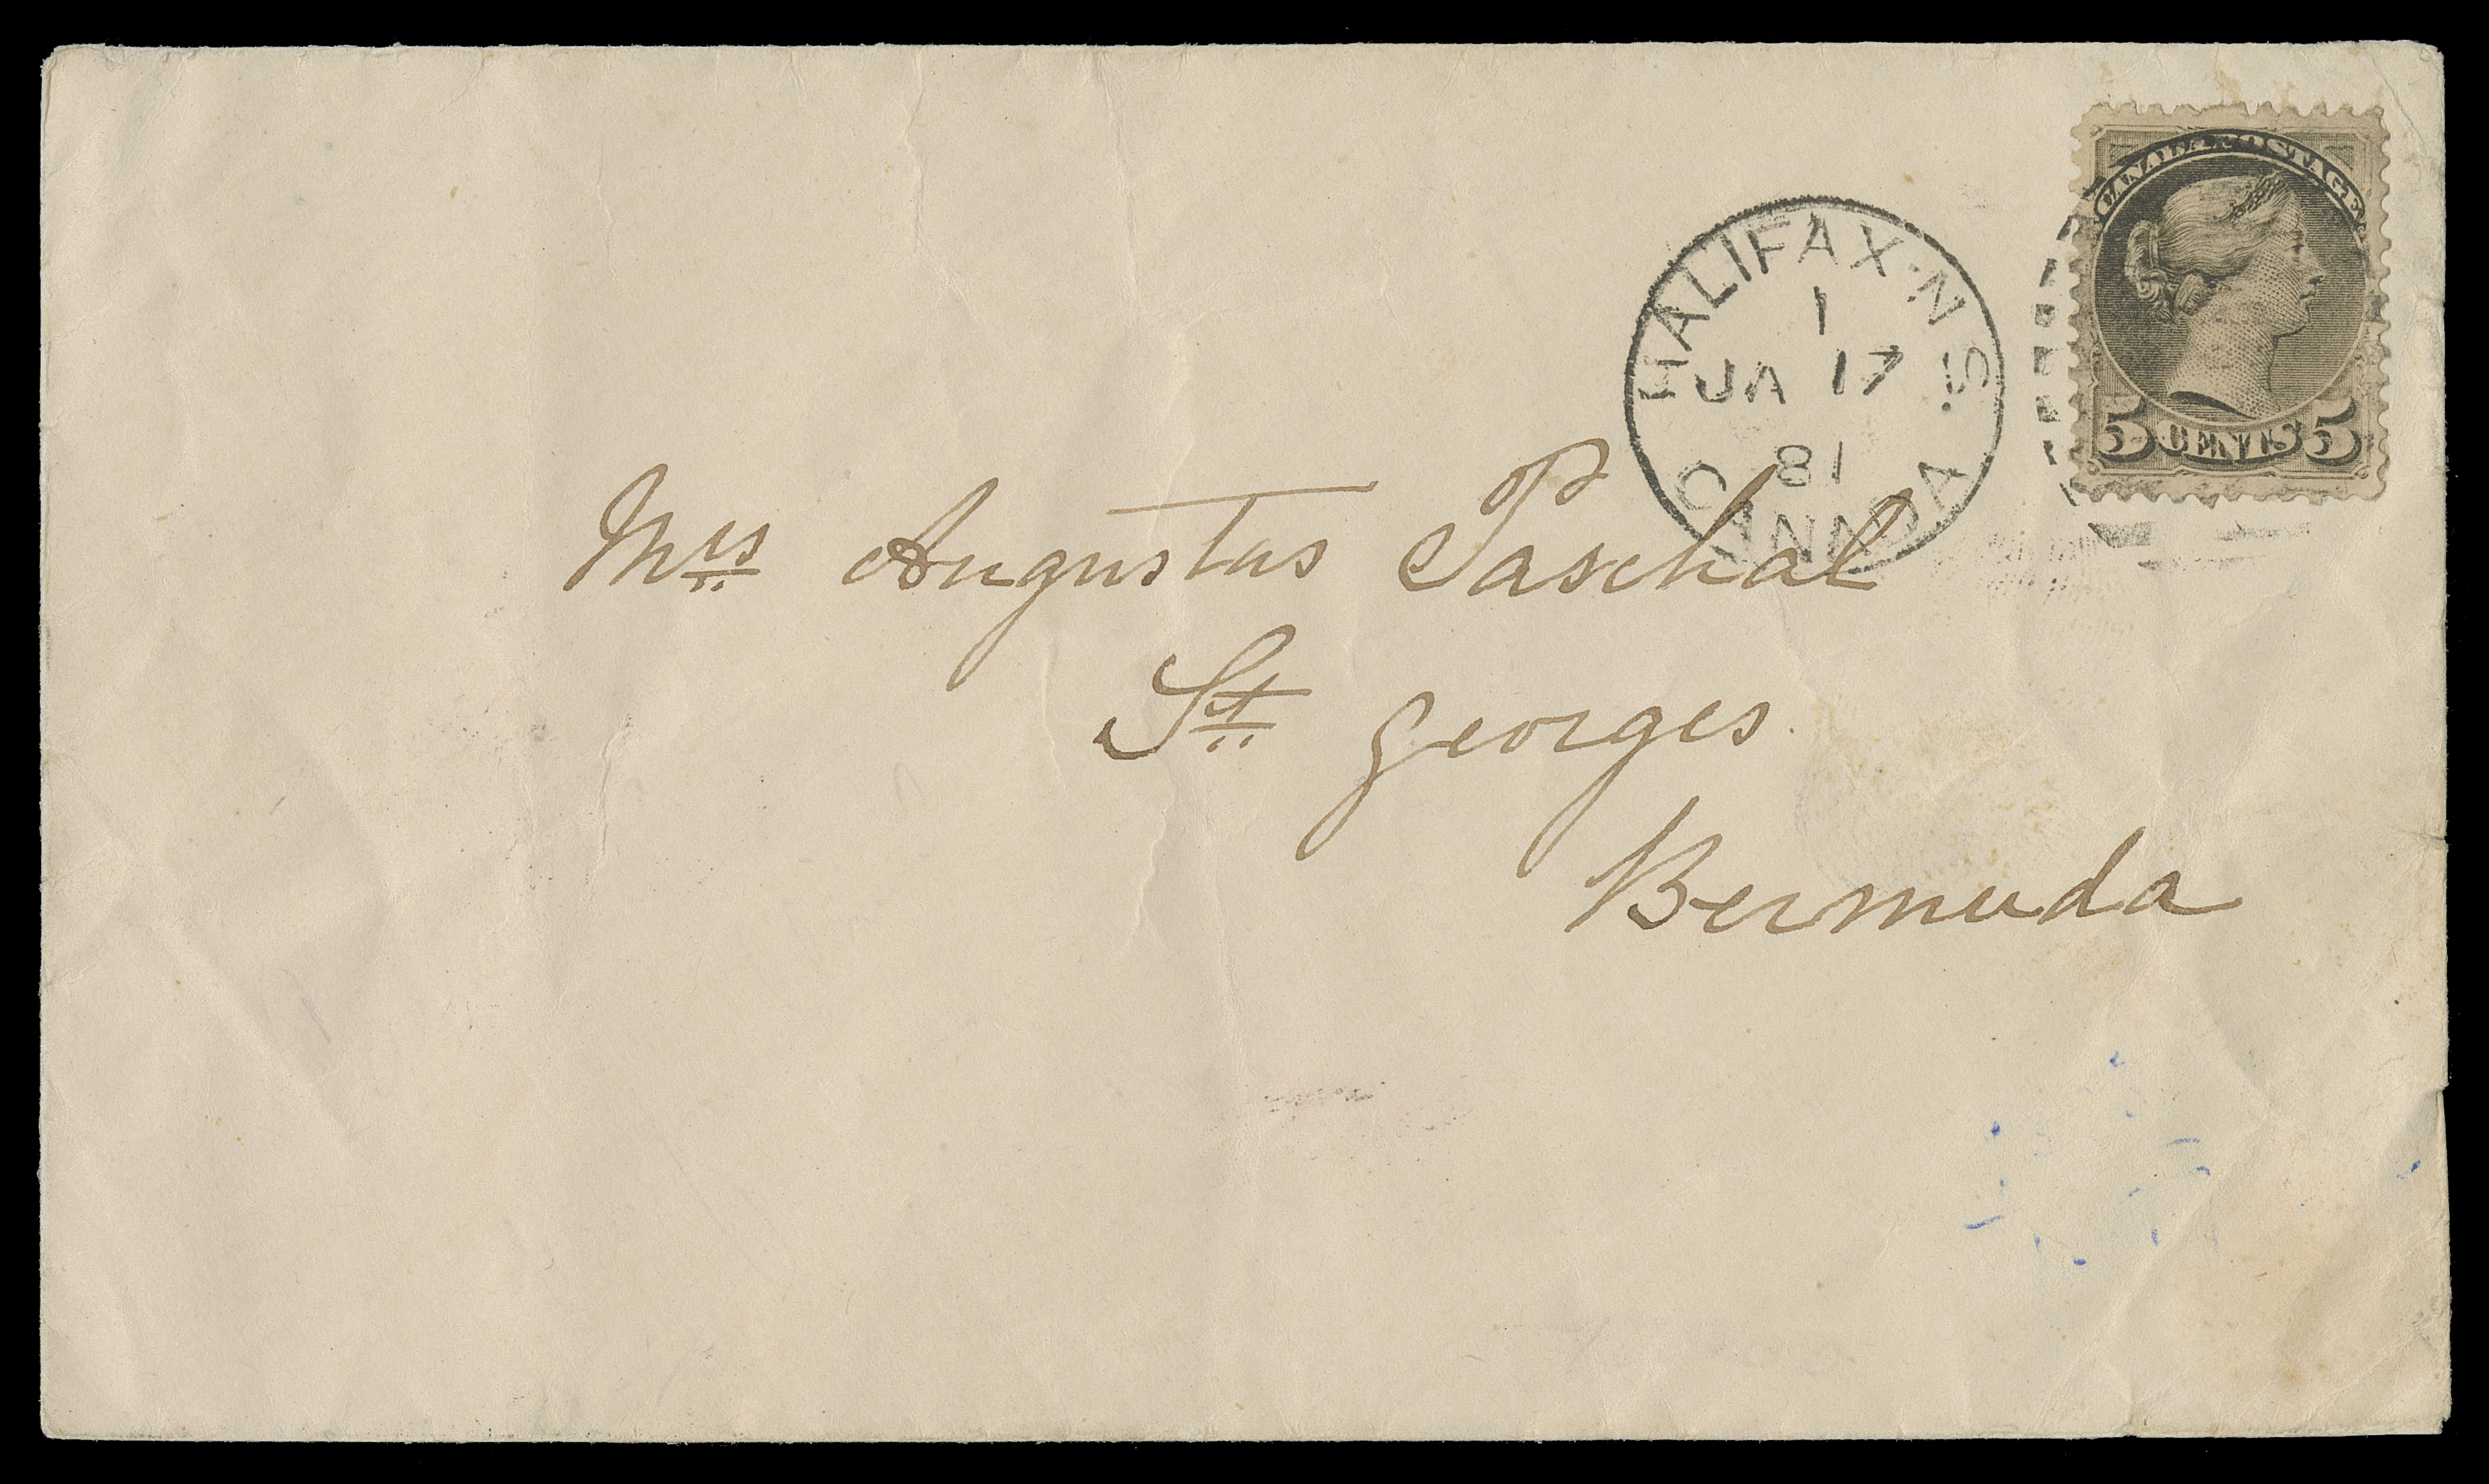 CANADA POSTAGE
5 CENTS 5
HALIFAX·N.S.
1
JA 17
81
CANADA
Mrs Augustus Paschal
St Georges
Bermuda